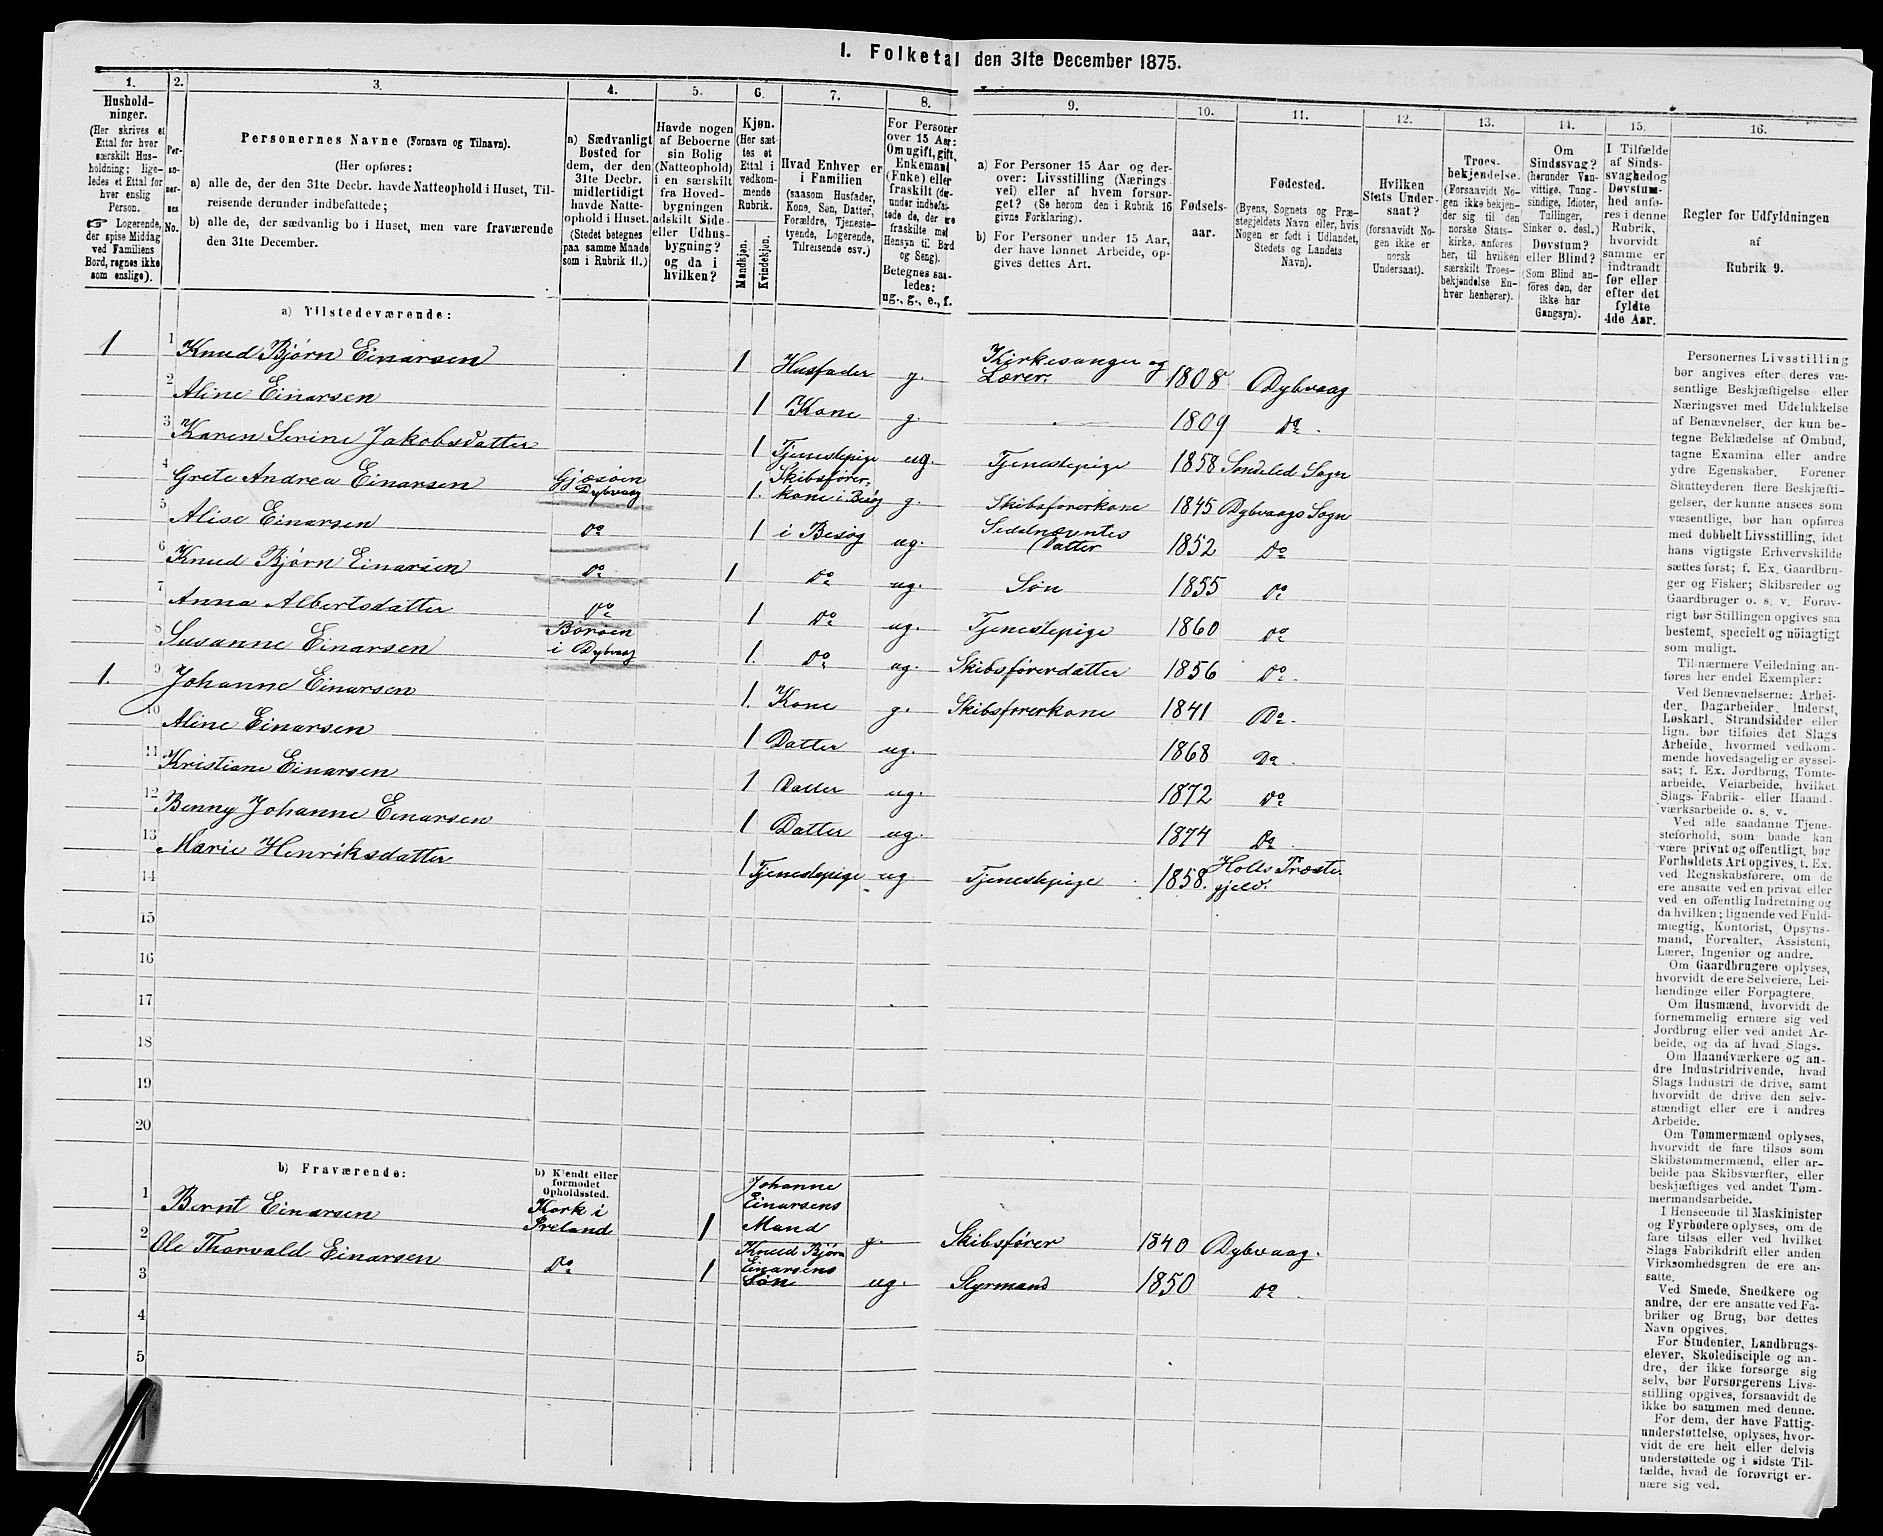 I. Folketal den 31te December 1875.
1. 2. 3. 4. 5. 6. 7. 8. 9. 10. 11. 12. 13. 14. 15. 16.
Hushold-
ninger.
(Her skrives et
Ettal for hver
særskilt Hus-
holdning; lige-
ledes et Ettal for
hver enslig
Person.
☞ Logerende,
der spise Middag
ved Familiens
Bord, regnes ikke
som enslige).
Per-
so-
ner-
nes
No.
Personernes Navne (Fornavn og Tilnavn).
(Her opføres:
a) alle de, der den 31te Decbr. havde Natteophold i Huset, Til-
reisende derunder indbefattede;
b) alle de, der sædvanlig bo i Huset, men vare fraværende
den 31te December.
a) Sædvanligt
Bosted for
dem, der den
31te Decbr.
midlertidigt
havde Natte-
ophold i Huset.
(Stedet betegnes
paa samme Maade
som i Rubrik 11.)
Havde nogen
af Beboerne
sin Bolig
(Natteophold)
i en særskilt
fra Hoved-
bygningen
adskilt Side-
eller Udhus-
bygning?
og da i
hvilken?
Kjøn.
(Her sæt-
tes et
Ettal i
vedkom-
mende
Rubrik.
Mandkjøn.
Kvindekjøn.
Hvad Enhver er
i Familien
(saasom Husfader,
Kone, Søn, Datter,
Forældre, Tjeneste-
tyende, Logerende,
Tilreisende osv.)
For Personer
over 15 Aar:
Om ugift, gift,
Enkemand
(Enke) eller
fraskilt (der-
under indbefat-
tede de, der ere
fraskilte med
Hensyn til Bord
og Seng).
Betegnes saa-
ledes:
ug., g., e., f.
a) For Personer 15 Aar og der-
over: Livsstilling (Nærings-
vei) eller af hvem forsør-
get? (Se herom den i Rubrik 16
givne Forklaring).
b) For Personer under 15 Aar,
der have lønnet Arbeide, op-
gives dettes Art.
Fødsels-
aar.
Fødested.
(Byens, Sognets og Præ-
stegjeldets Navn eller, hvis
Nogen er født i Udlandet,
Stedets og Landets
Navn).
Hvilken
Stats Under-
saat?
(forsaavidt No-
gen ikke er
norsk
Undersaat).
Troes-
bekjendelse.
(Forsaavidt No-
gen ikke bekjen-
der sig til den
norske Stats-
kirke, anføres
her, til hvilken
særskilt Troes-
bekjendelse En-
hver henhører).
Om
Sindssvag?
(herunder Van-
vittige, Tung-
sindige, Idioter,
Tullinger,
Sinker o. desl.)
Døvstum?
eller Blind?
(Som Blind an-
føres den, der
ikke har
Gangsyn).
I Tilfælde
af Sinds-
svaghed og
Døvstum-
hed anfø-
res i denne
Rubrik,
hvorvidt
samme er
indtraadt
før eller
efter det
fyldte
4de Aar.
Regler for Udfyldningen
af
Rubrik 9.
a) Tilstedeværende:
1 1 Knud Bjørn Einarsen 1 Husfader g. Kirkesanger og Lærer. 1808 Dybvaag
2 Aline Einarsen 1 Kone g. 1809 Do.
3 Karen Serine Jakobsdatter 1 Tjenestepige ug. Tjenestepige 1858 Søndeled Sogn
4 Grete Andrea Einarsen Gjæsøen Dybvaag 1. Skibsfører- kone i Besøg g. Skibsførerkone 1845 Dybvaags Sogn
5 Alise Einarsen Do 1 i Besøg ug. Datter 1852 Do
6 Knud Bjørn Einarsen Do 1 Do ug. Søn 1855 Do
7 Anna Albertsdatter Do 1 Do ug. Tjenestepige 1860 Do
8 Susanne Einarsen Borøen i Dybvaag 1. Do ug. Skibsførerdatter 1856 Do.
1. 9 Johanne Einarsen 1. Kone g. Skibsførerkone 1841 Do.
10 Aline Einarsen 1 Datter ug. 1868 Do.
11 Kristiane Einarsen 1 Datter ug. 1872 Do
12 Benny Johanne Einarsen 1 Datter ug. 1874 Do
13 Marie Henriksdatter 1 Tjenestepige ug. Tjenestepige 1858. Holts Præste- gjeld.
14
15
16
17
18
19
20
b) Fraværende:
b) Kjendt eller
formodet
Opholdssted.
1 Bernt Einarsen Kork i Ireland 1 Johanne Einarsens Mand g. Skibsfører 1840 Dybvaag.
2 Ole Thorvald Einarsen Do 1 Knud Bjørn Einarsens Søn ug. Styrmand 1850 Do.
3
4
5
Personernes Livsstilling
bør angives efter deres væ-
sentlige Beskjæftigelse eller
Næringsvei med Udelukkelse
af Benævnelser, der kun be-
tegne Beklædelse af Ombud,
tagne Examina eller andre
ydre Egenskaber. Forener
Skatteyderen flere Beskjæfti-
gelser, der kunne ansees som
væsentlige, bør han opføres
med dobbelt Livsstilling, idet
hans vigtigste Erhvervskilde
sættes først; f. Ex. Gaardbru-
ger og Fisker; Skibsreder og
Gaardbruger o. s. v. Forøv-
rigt bør Stillingen opgives saa
bestemt, specielt og nøiagtigt
som muligt.
Til nærmere Veiledning an-
føres her endel Exempler:
Ved Benævnelserne: Arbei-
der, Dagarbeider, Inderst,
Løskarl, Strandsidder eller
lign. bør tilføies det Slags
Arbeide, hvormed vedkom-
mende hovedsagelig er syssel-
sat; f. Ex. Jordbrug, Tomte-
arbeide, Veiarbeide, hvilket
Slags Fabrik- eller Haand-
værksarbeide o. s. v.
Ved alle saadanne Tjene-
steforhold, som baade kan
være privat og offentligt, bør
Forholdets Art opgives, t. Ex.
ved Regnskabsførere, om de
ere ansatte ved en privat eller
ved en offentlig Indretning og
da hvilken; lignende ved Fuld-
mægtig, Kontorist, Opsyns-
mand, Forvalter, Assistent,
Lærer, Ingeniør og andre.
Om Gaardbrugere oplyses,
hvorvidt de ere Selveiere, Lei-
lændinge eller Forpagtere.
Om Husmænd, hvorvidt de
fornemmelig ernære sig ved
Jordbrug eller ved andet Ar-
beide, og da af hvad Slags.
Om Haandværkere og an-
dre Industridrivende, hvad
Slags Industri de drive, samt
hvorvidt de drive den selv-
stændigt eller ere i andres
Arbeide.
Om Tømmermænd oplyses,
hvorvidt de fare tilsøs som
Skibstømmermænd, eller ar-
beide paa Skibsværfter, eller
beskjæftiges ved andet Tøm-
mermandsarbeide.
I Henseende til Maskinister
og Fyrbødere oplyses, om de
fare tilsøs eller ved hvilket
Slags Fabrikdrift eller anden
Virksomhedsgren de ere an-
satte.
Ved Smede, Snedkere og
andre, der ere ansatte ved Fa-
briker og Brug, bør dettes
Navn opgives.
For Studenter, Landbrugs-
elever, Skoledisciple og an-
dre, der ikke forsørge sig
selv, bør Forsørgerens Livs-
stilling opgives, forsaavidt de
ikke bo sammen med denne.
For dem, der have Fattig-
understøttelse, oplyses, hvor-
vidt de ere helt eller delvis
understøttede og i sidste Til-
fælde, hvad de forøvrigt er-
nære sig ved.